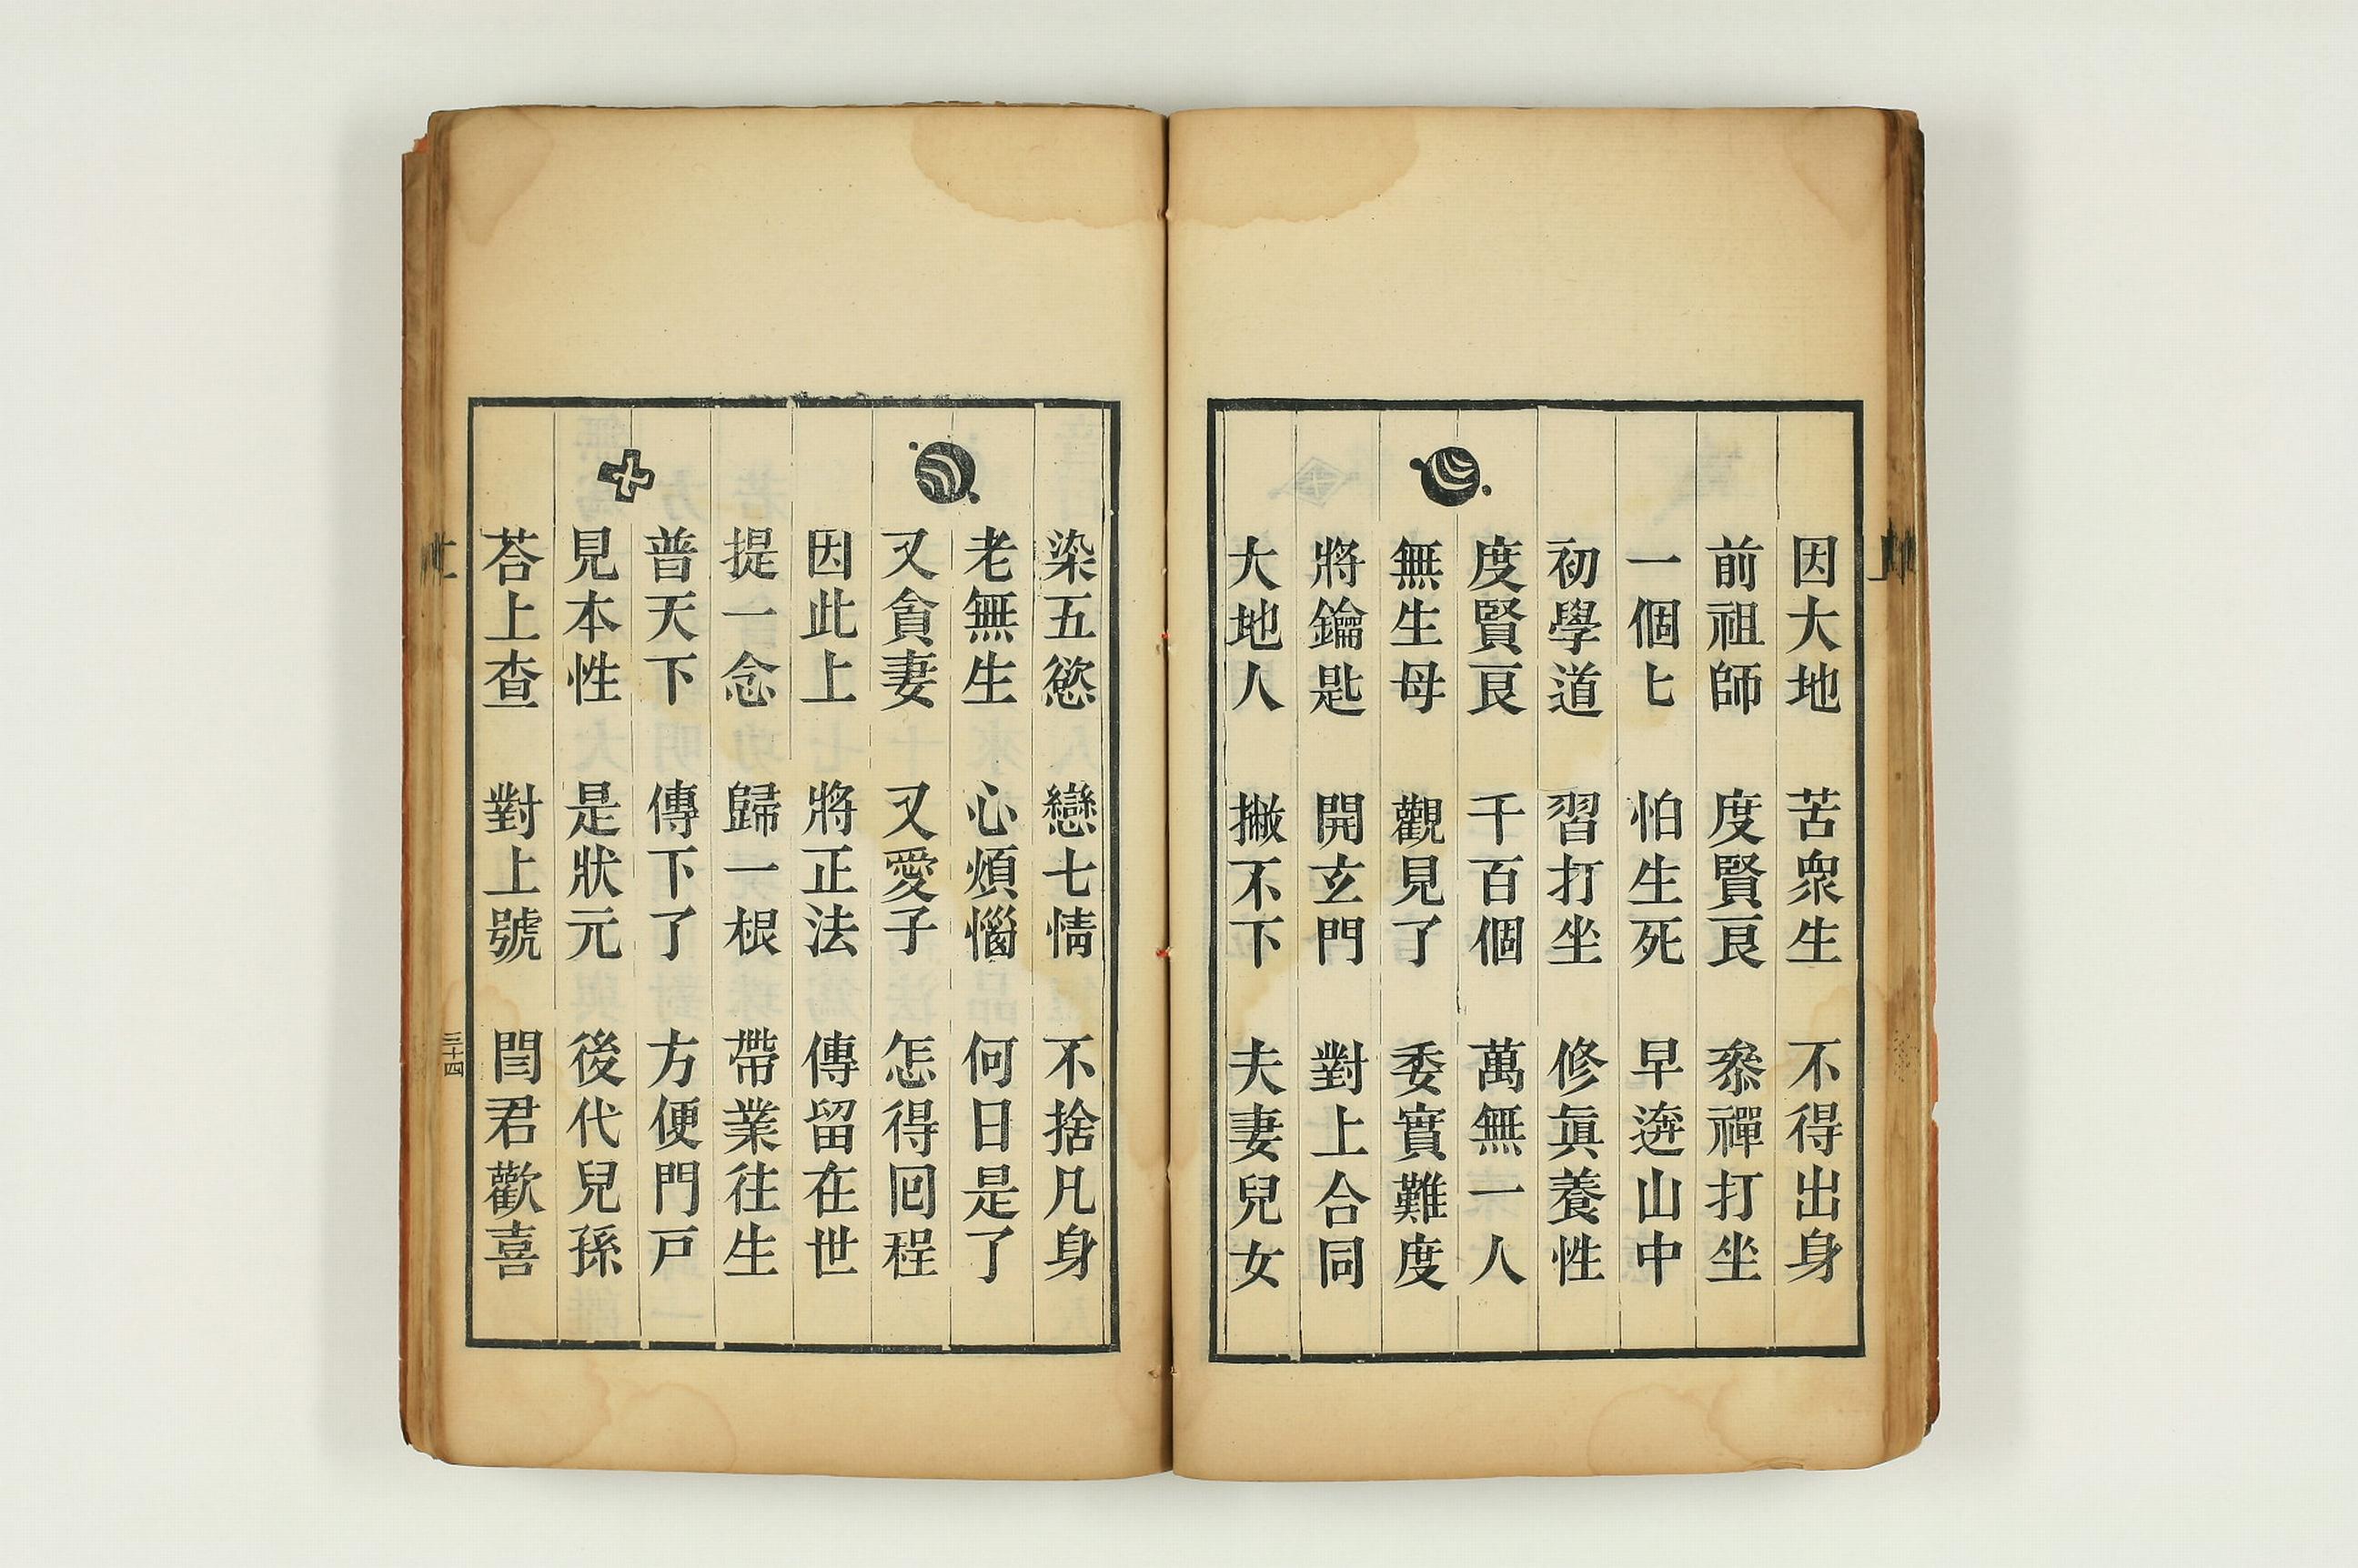 因大地 苦衆生 不得出身
前祖師 度賢良 叅禪打坐
一個匕 怕生死 早迯山中
初學道 習打坐 修眞養性
度賢良 千百個 萬無一人
無生母 觀見了 委實難度
將鑰匙 開玄門 對上合同
大地人 撇不下 夫妻兒女
染五慾 戀七情 不捨凡身
老無生 心煩惱 何日是了
又貪妻 又愛子 怎得囘程
因此上 將正法 傳留在世
提一念 歸一根 帶業往生
普天下 傳下了 方便門戸
見本性 是狀元 後代兒孫
荅上查 對上號 閆君歡喜
三十四